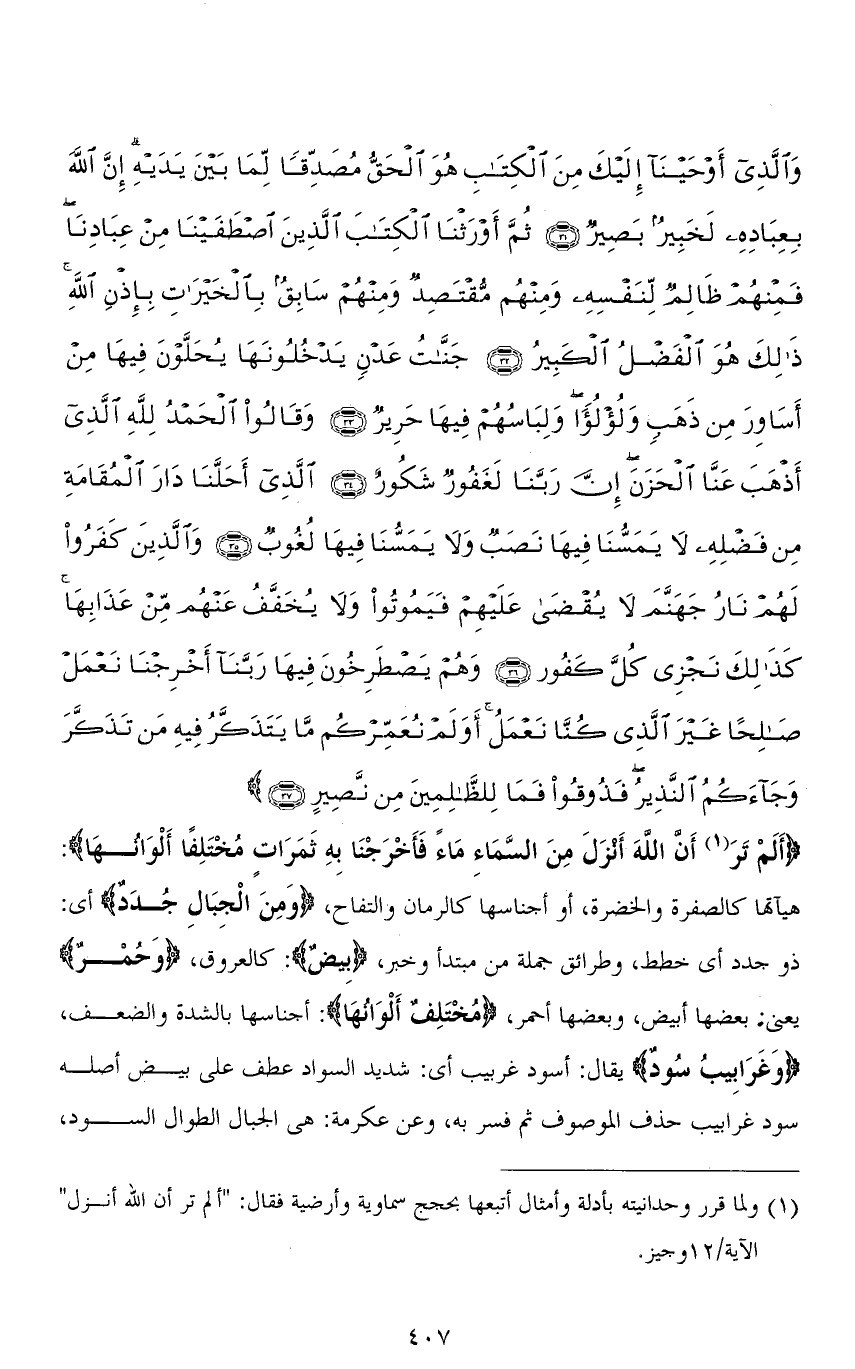 وَٱلَّذِىٓ أَوْحَيْنَآ إِلَيْكَ مِنَ ٱلْكِتَٰبِ هُوَ ٱلْحَقُّ مُصَدِّقًا لِّمَا بَيْنَ يَدَيْهِ ۗ إِنَّ ٱللَّهَ
بِعِبَادِهِۦ لَخَبِيرٌۢ بَصِيرٌ ﴿٣١﴾ ثُمَّ أَوْرَثْنَا ٱلْكِتَٰبَ ٱلَّذِينَ ٱصْطَفَيْنَا مِنْ عِبَادِنَا ۖ
فَمِنْهُمْ ظَالِمٌ لِّنَفْسِهِۦ وَمِنْهُم مُّقْتَصِدٌ وَمِنْهُمْ سَابِقٌۢ بِٱلْخَيْرَٰتِ بِإِذْنِ ٱللَّهِ ۚ
ذَٰلِكَ هُوَ ٱلْفَضْلُ ٱلْكَبِيرُ ﴿٣٢﴾ جَنَّٰتُ عَدْنٍ يَدْخُلُونَهَا يُحَلَّوْنَ فِيهَا مِنْ
أَسَاوِرَ مِن ذَهَبٍ وَلُؤْلُؤًا ۖ وَلِبَاسُهُمْ فِيهَا حَرِيرٌ ﴿٣٣﴾ وَقَالُوا۟ ٱلْحَمْدُ لِلَّهِ ٱلَّذِىٓ
أَذْهَبَ عَنَّا ٱلْحَزَنَ ۖ إِنَّ رَبَّنَا لَغَفُورٌ شَكُورٌ ﴿٣٤﴾ ٱلَّذِىٓ أَحَلَّنَا دَارَ ٱلْمُقَامَةِ
مِن فَضْلِهِۦ لَا يَمَسُّنَا فِيهَا نَصَبٌ وَلَا يَمَسُّنَا فِيهَا لُغُوبٌ ﴿٣٥﴾ وَٱلَّذِينَ كَفَرُوا۟
لَهُمْ نَارُ جَهَنَّمَ لَا يُقْضَىٰ عَلَيْهِمْ فَيَمُوتُوا۟ وَلَا يُخَفَّفُ عَنْهُم مِّنْ عَذَابِهَا ۚ
كَذَٰلِكَ نَجْزِى كُلَّ كَفُورٍ ﴿٣٦﴾ وَهُمْ يَصْطَرِخُونَ فِيهَا رَبَّنَآ أَخْرِجْنَا نَعْمَلْ
صَٰلِحًا غَيْرَ ٱلَّذِى كُنَّا نَعْمَلُ ۚ أَوَلَمْ نُعَمِّرْكُم مَّا يَتَذَكَّرُ فِيهِ مَن تَذَكَّرَ
وَجَآءَكُمُ ٱلنَّذِيرُ ۖ فَذُوقُوا۟ فَمَا لِلظَّٰلِمِينَ مِن نَّصِيرٍ ﴿٣٧﴾ ﴾
﴿أَلَمْ تَرَ(١) أَنَّ اللَّهَ أَنْزَلَ مِنَ السَّمَاءِ مَاءً فَأَخْرَجْنَا بِهِ ثَمَرَاتٍ مُخْتَلِفًا أَلْوَانُهَا﴾:
هيآتها كالصفرة والخضرة، أو أجناسها كالرمان والتفاح، ﴿وَمِنَ الْجِبَالِ جُدَدٌ﴾ أى:
ذو جدد أى خطط، وطرائق جملة من مبتدأ وخبر، ﴿بِيضٌ﴾: كالعروق، ﴿وَحُمْرٌ﴾
يعنى: بعضها أبيض، وبعضها أحمر، ﴿مُخْتَلِفٌ أَلْوَانُهَا﴾: أجناسها بالشدة والضعف،
﴿وَغَرَابِيبُ سُودٌ﴾ يقال: أسود غربيب أى: شديد السواد عطف على بيض أصله
سود غرابيب حذف الموصوف ثم فسر به، وعن عكرمة: هى الجبال الطوال السود،
(١) ولما قرر وحدانيته بأدلة وأمثال أتبعها بحجج سماوية وأرضية فقال: "ألم تر أن الله أنزل"
الآية/١٢وجيز.
٤٠٧